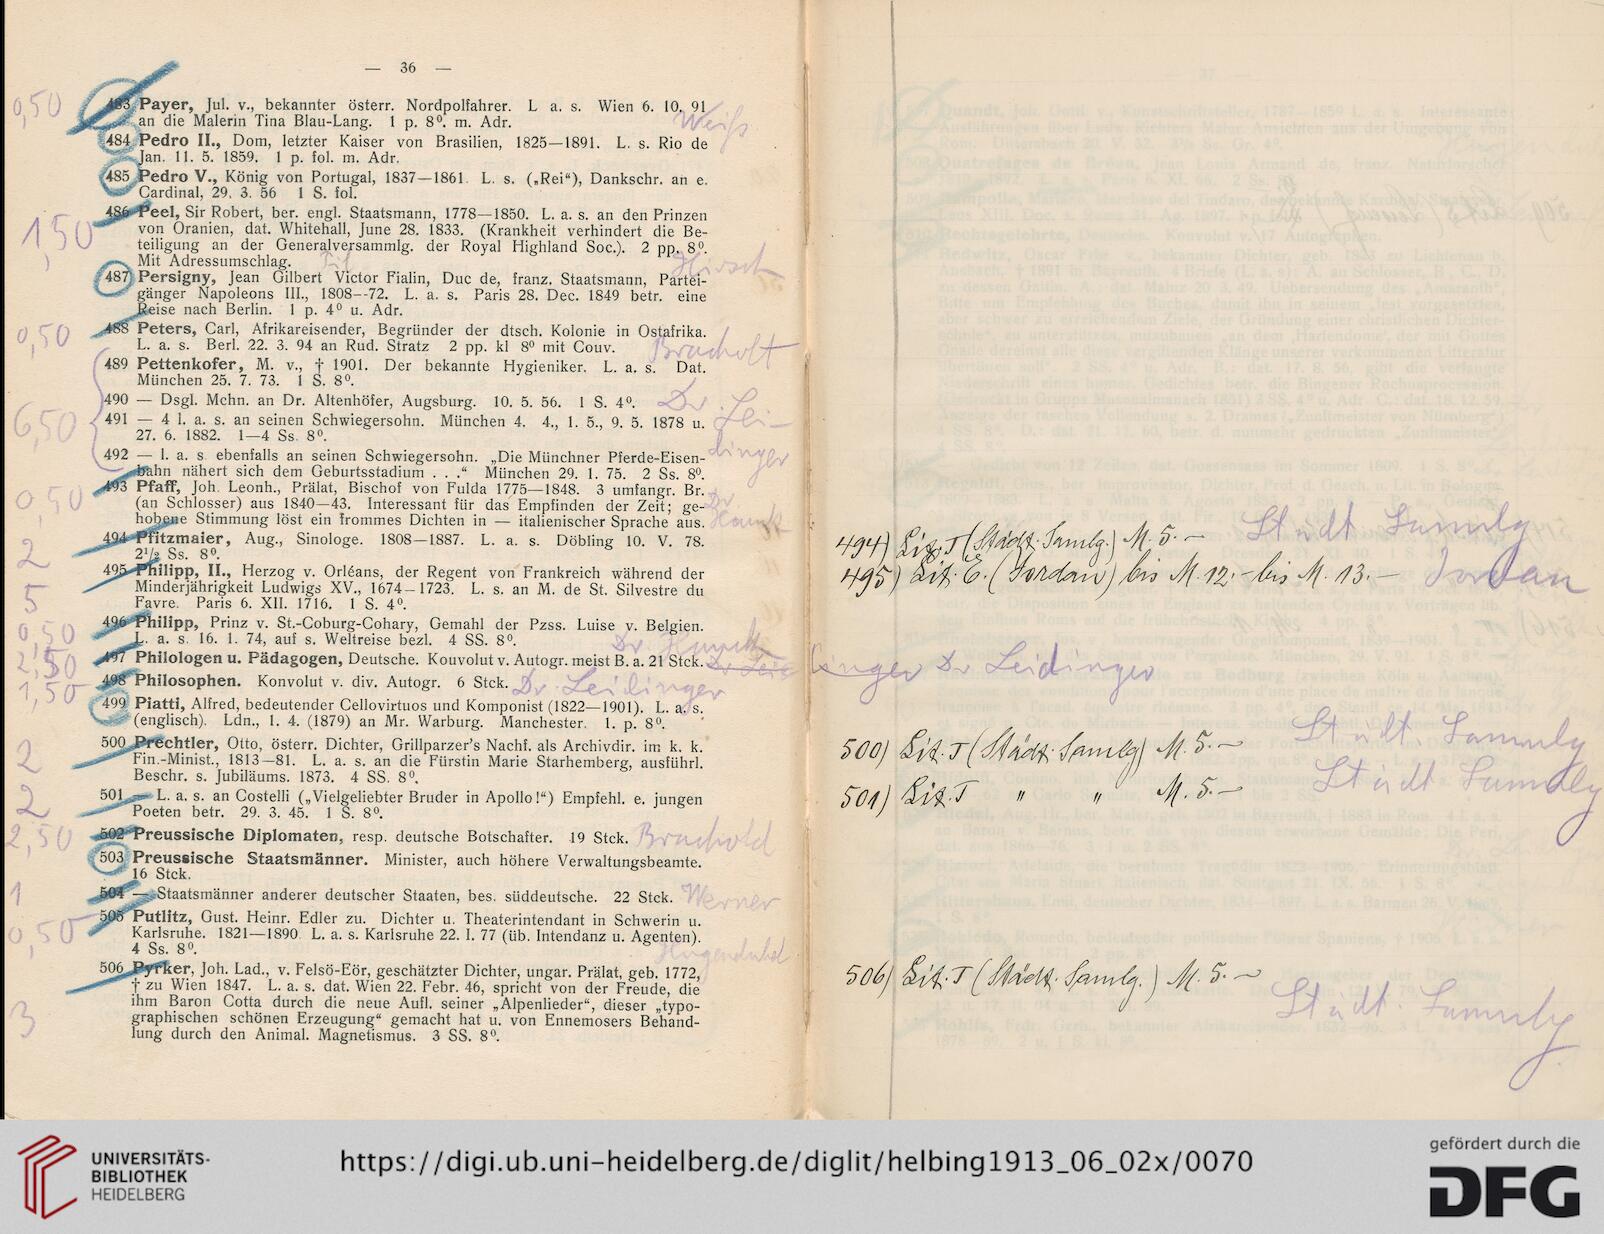 — 36 —
0,50
483 Payer, Jul. v., bekannter österr. Nordpolfahrer. L a. s. Wien 6. 10. 91
an die Malerin Tina Blau-Lang. 1 p. 8⁰. m. Adr.
Weiß
484 Pedro II., Dom, letzter Kaiser von Brasilien, 1825—1891. L. s. Rio de
Jan. 11. 5. 1859. 1 p. fol. m. Adr.
485 Pedro V., König von Portugal, 1837—1861. L. s. („Rei“), Dankschr. an e.
Cardinal, 29. 3. 56 1 S. fol.
1,50
486 Peel, Sir Robert, ber. engl. Staatsmann, 1778—1850. L. a. s. an den Prinzen
von Oranien, dat. Whitehall, June 28. 1833. (Krankheit verhindert die Be-
teiligung an der Generalversammlg. der Royal Highland Soc.). 2 pp. 8⁰.
Mit Adressumschlag.
Hirsch
487 Persigny, Jean Gilbert Victor Fialin, Duc de, franz. Staatsmann, Partei-
gänger Napoleons III., 1808--72. L. a. s. Paris 28. Dec. 1849 betr. eine
Reise nach Berlin. 1 p. 4⁰ u. Adr.
0,50
488 Peters, Carl, Afrikareisender, Begründer der dtsch. Kolonie in Ostafrika.
L. a. s. Berl. 22. 3. 94 an Rud. Stratz 2 pp. kl 8⁰ mit Couv.
Bracholt
489 Pettenkofer, M. v., † 1901. Der bekannte Hygieniker. L. a. s. Dat.
München 25. 7. 73. 1 S. 8⁰.
490 — Dsgl. Mchn. an Dr. Altenhöfer, Augsburg. 10. 5. 56. 1 S. 4⁰.
Dr. Lei-
dinger
6,50
491 — 4 l. a. s. an seinen Schwiegersohn. München 4. 4., 1. 5., 9. 5. 1878 u.
27. 6. 1882. 1—4 Ss. 8⁰.
492 — l. a. s. ebenfalls an seinen Schwiegersohn. „Die Münchner Pferde-Eisen-
bahn nähert sich dem Geburtsstadium . . .“ München 29. 1. 75. 2 Ss. 8⁰.
0,50
493 Pfaff, Joh. Leonh., Prälat, Bischof von Fulda 1775—1848. 3 umfangr. Br.
(an Schlosser) aus 1840—43. Interessant für das Empfinden der Zeit; ge-
hobene Stimmung löst ein frommes Dichten in — italienischer Sprache aus.
Dr
2
494 Pfitzmaier, Aug., Sinologe. 1808—1887. L. a. s. Döbling 10. V. 78.
2½ Ss. 8⁰.
5
495 Philipp, II., Herzog v. Orléans, der Regent von Frankreich während der
Minderjährigkeit Ludwigs XV., 1674–1723. L. s. an M. de St. Silvestre du
Favre. Paris 6. XII. 1716. 1 S. 4⁰.
0,50
496 Philipp, Prinz v. St.-Coburg-Cohary, Gemahl der Pzss. Luise v. Belgien.
L. a. s. 16. 1. 74, auf s. Weltreise bezl. 4 SS. 8⁰.
Dr.
2,50
497 Philologen u. Pädagogen, Deutsche. Kouvolut v. Autogr. meist B. a. 21 Stck.
Dr Leidinger Dr Leidinger
1,50
498 Philosophen. Konvolut v. div. Autogr. 6 Stck.
Dr. Leidinger
499 Piatti, Alfred, bedeutender Cellovirtuos und Komponist (1822—1901). L. a. s.
(englisch). Ldn., 1. 4. (1879) an Mr. Warburg. Manchester. 1. p. 8⁰.
2
500 Prechtler, Otto, österr. Dichter, Grillparzer's Nachf. als Archivdir. im k. k.
Fin.-Minist., 1813—81. L. a. s. an die Fürstin Marie Starhemberg, ausführl.
Beschr. s. Jubiläums. 1873. 4 SS. 8⁰.
2
501 — L. a. s. an Costelli („Vielgeliebter Bruder in Apollo!“) Empfehl. e. jungen
Poeten betr. 29. 3. 45. 1 S. 8⁰.
2,50
502 Preussische Diplomaten, resp. deutsche Botschafter. 19 Stck.
Brachold
503 Preussische Staatsmänner. Minister, auch höhere Verwaltungsbeamte.
16 Stck.
1
504 — Staatsmänner anderer deutscher Staaten, bes. süddeutsche. 22 Stck.
Werner
0,50
505 Putlitz, Gust. Heinr. Edler zu. Dichter u. Theaterintendant in Schwerin u.
Karlsruhe. 1821—1890. L. a. s. Karlsruhe 22. I. 77 (üb. Intendanz u. Agenten).
4 Ss. 8⁰.
3
506 Pyrker, Joh. Lad., v. Felsö-Eör, geschätzter Dichter, ungar. Prälat, geb. 1772,
† zu Wien 1847. L. a. s. dat. Wien 22. Febr. 46, spricht von der Freude, die
ihm Baron Cotta durch die neue Aufl. seiner „Alpenlieder“, dieser „typo-
graphischen schönen Erzeugung“ gemacht hat u. von Ennemosers Behand-
lung durch den Animal. Magnetismus. 3 SS. 8⁰.
494) Lit. T (Städt. Samlg.) M. 5.— Städt Samlg
495) Lit. E. (Jordan) bis M. 12.- bis M. 13.— Jordan
500) Lit. T (Städt. Samlg) M. 5.— Städt. Sammlg
501) Lit. T " " M. 5.— Städt Sammlg
506) Lit. T (Städt. Samlg.) M. 5.— Städt. Sammlg
UNIVERSITÄTS-
BIBLIOTHEK
HEIDELBERG
https://digi.ub.uni-heidelberg.de/diglit/helbing1913_06_02x/0070
gefördert durch die
DFG